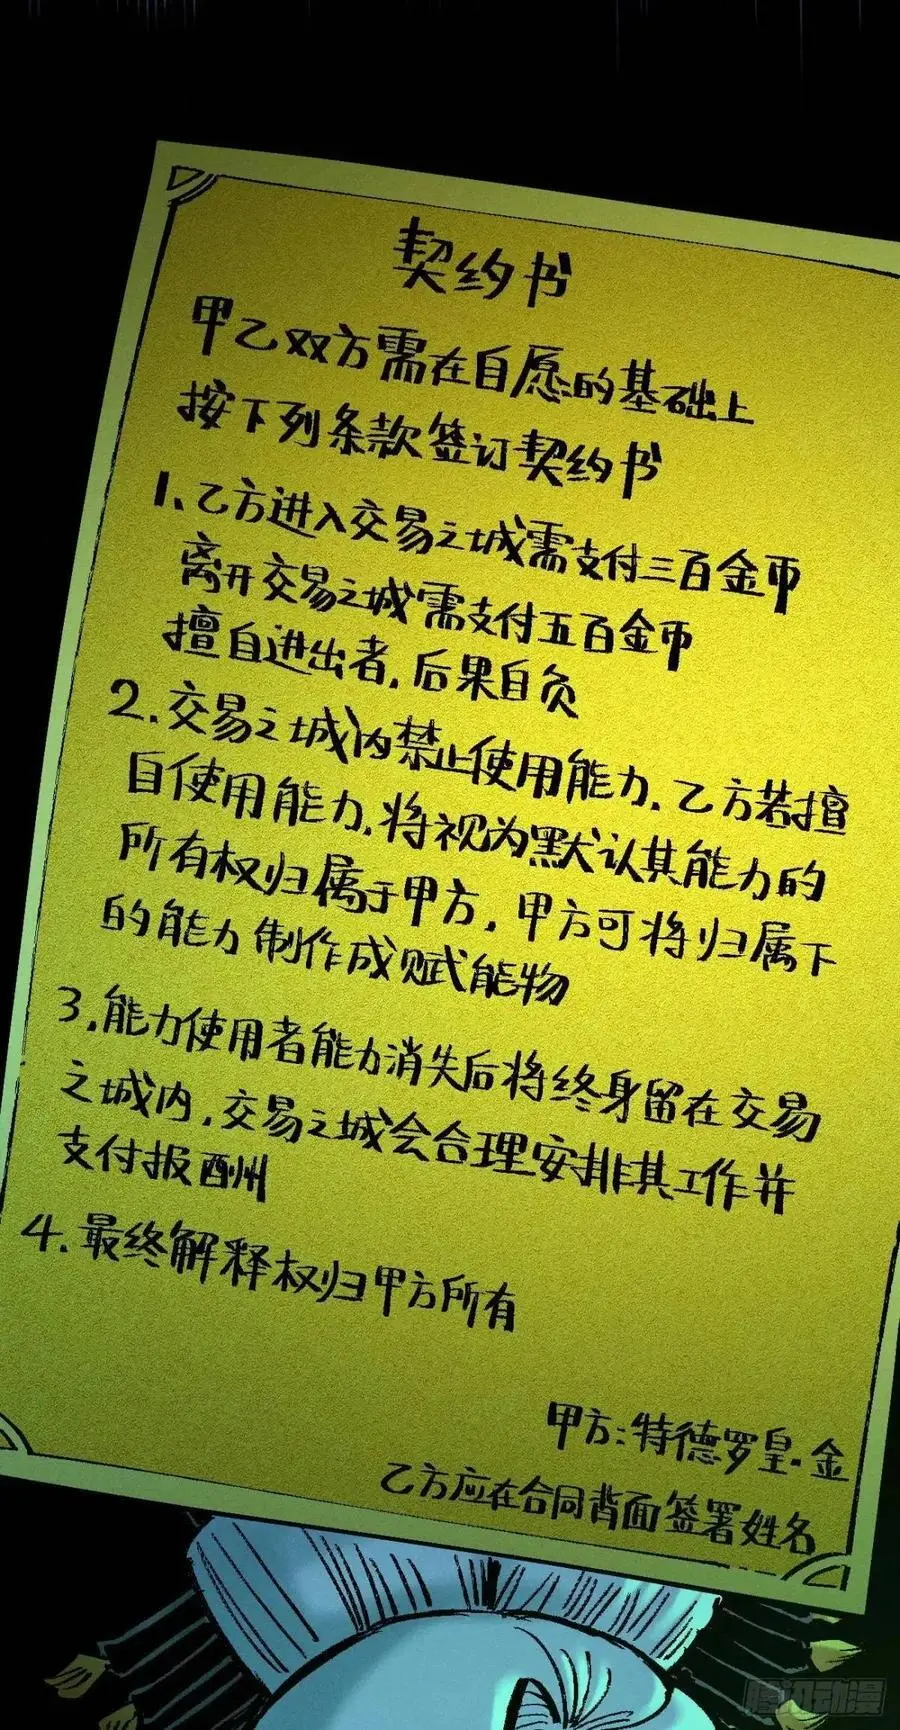 契约书
甲乙双方需在自愿的基础上
按下列条款签订契约书
1、乙方进入交易之城需支付三百金币
离开交易之城需支付五百金币
擅自进出者,后果自负
2.交易之城内禁止使用能力.乙方若擅
自使用能力,将视为默认其能力的
所有权归属于甲方,甲方可将归属下
的能力制作成赋能物
3,能力使用者能力消失后将终身留在交易
之城内,交易之城会合理安排其工作并
支付报酬州
4.最终解释权归甲方所有
甲方:特德罗皇.金
乙方应在合同背面签署姓名
腾讯动漫